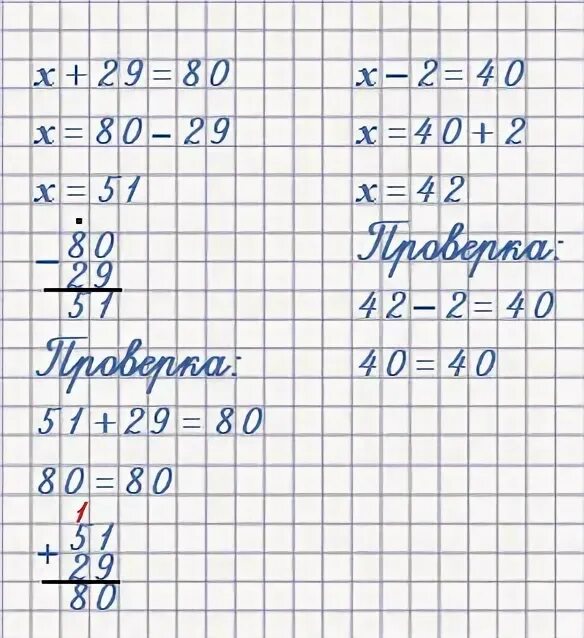 x + 29 = 80
x = 80 − 29
x = 51
− 80
29
51
Проверка:
51 + 29 = 80
80 = 80
1
+ 51
29
80
x − 2 = 40
x = 40 + 2
x = 42
Проверка:
42 − 2 = 40
40 = 40